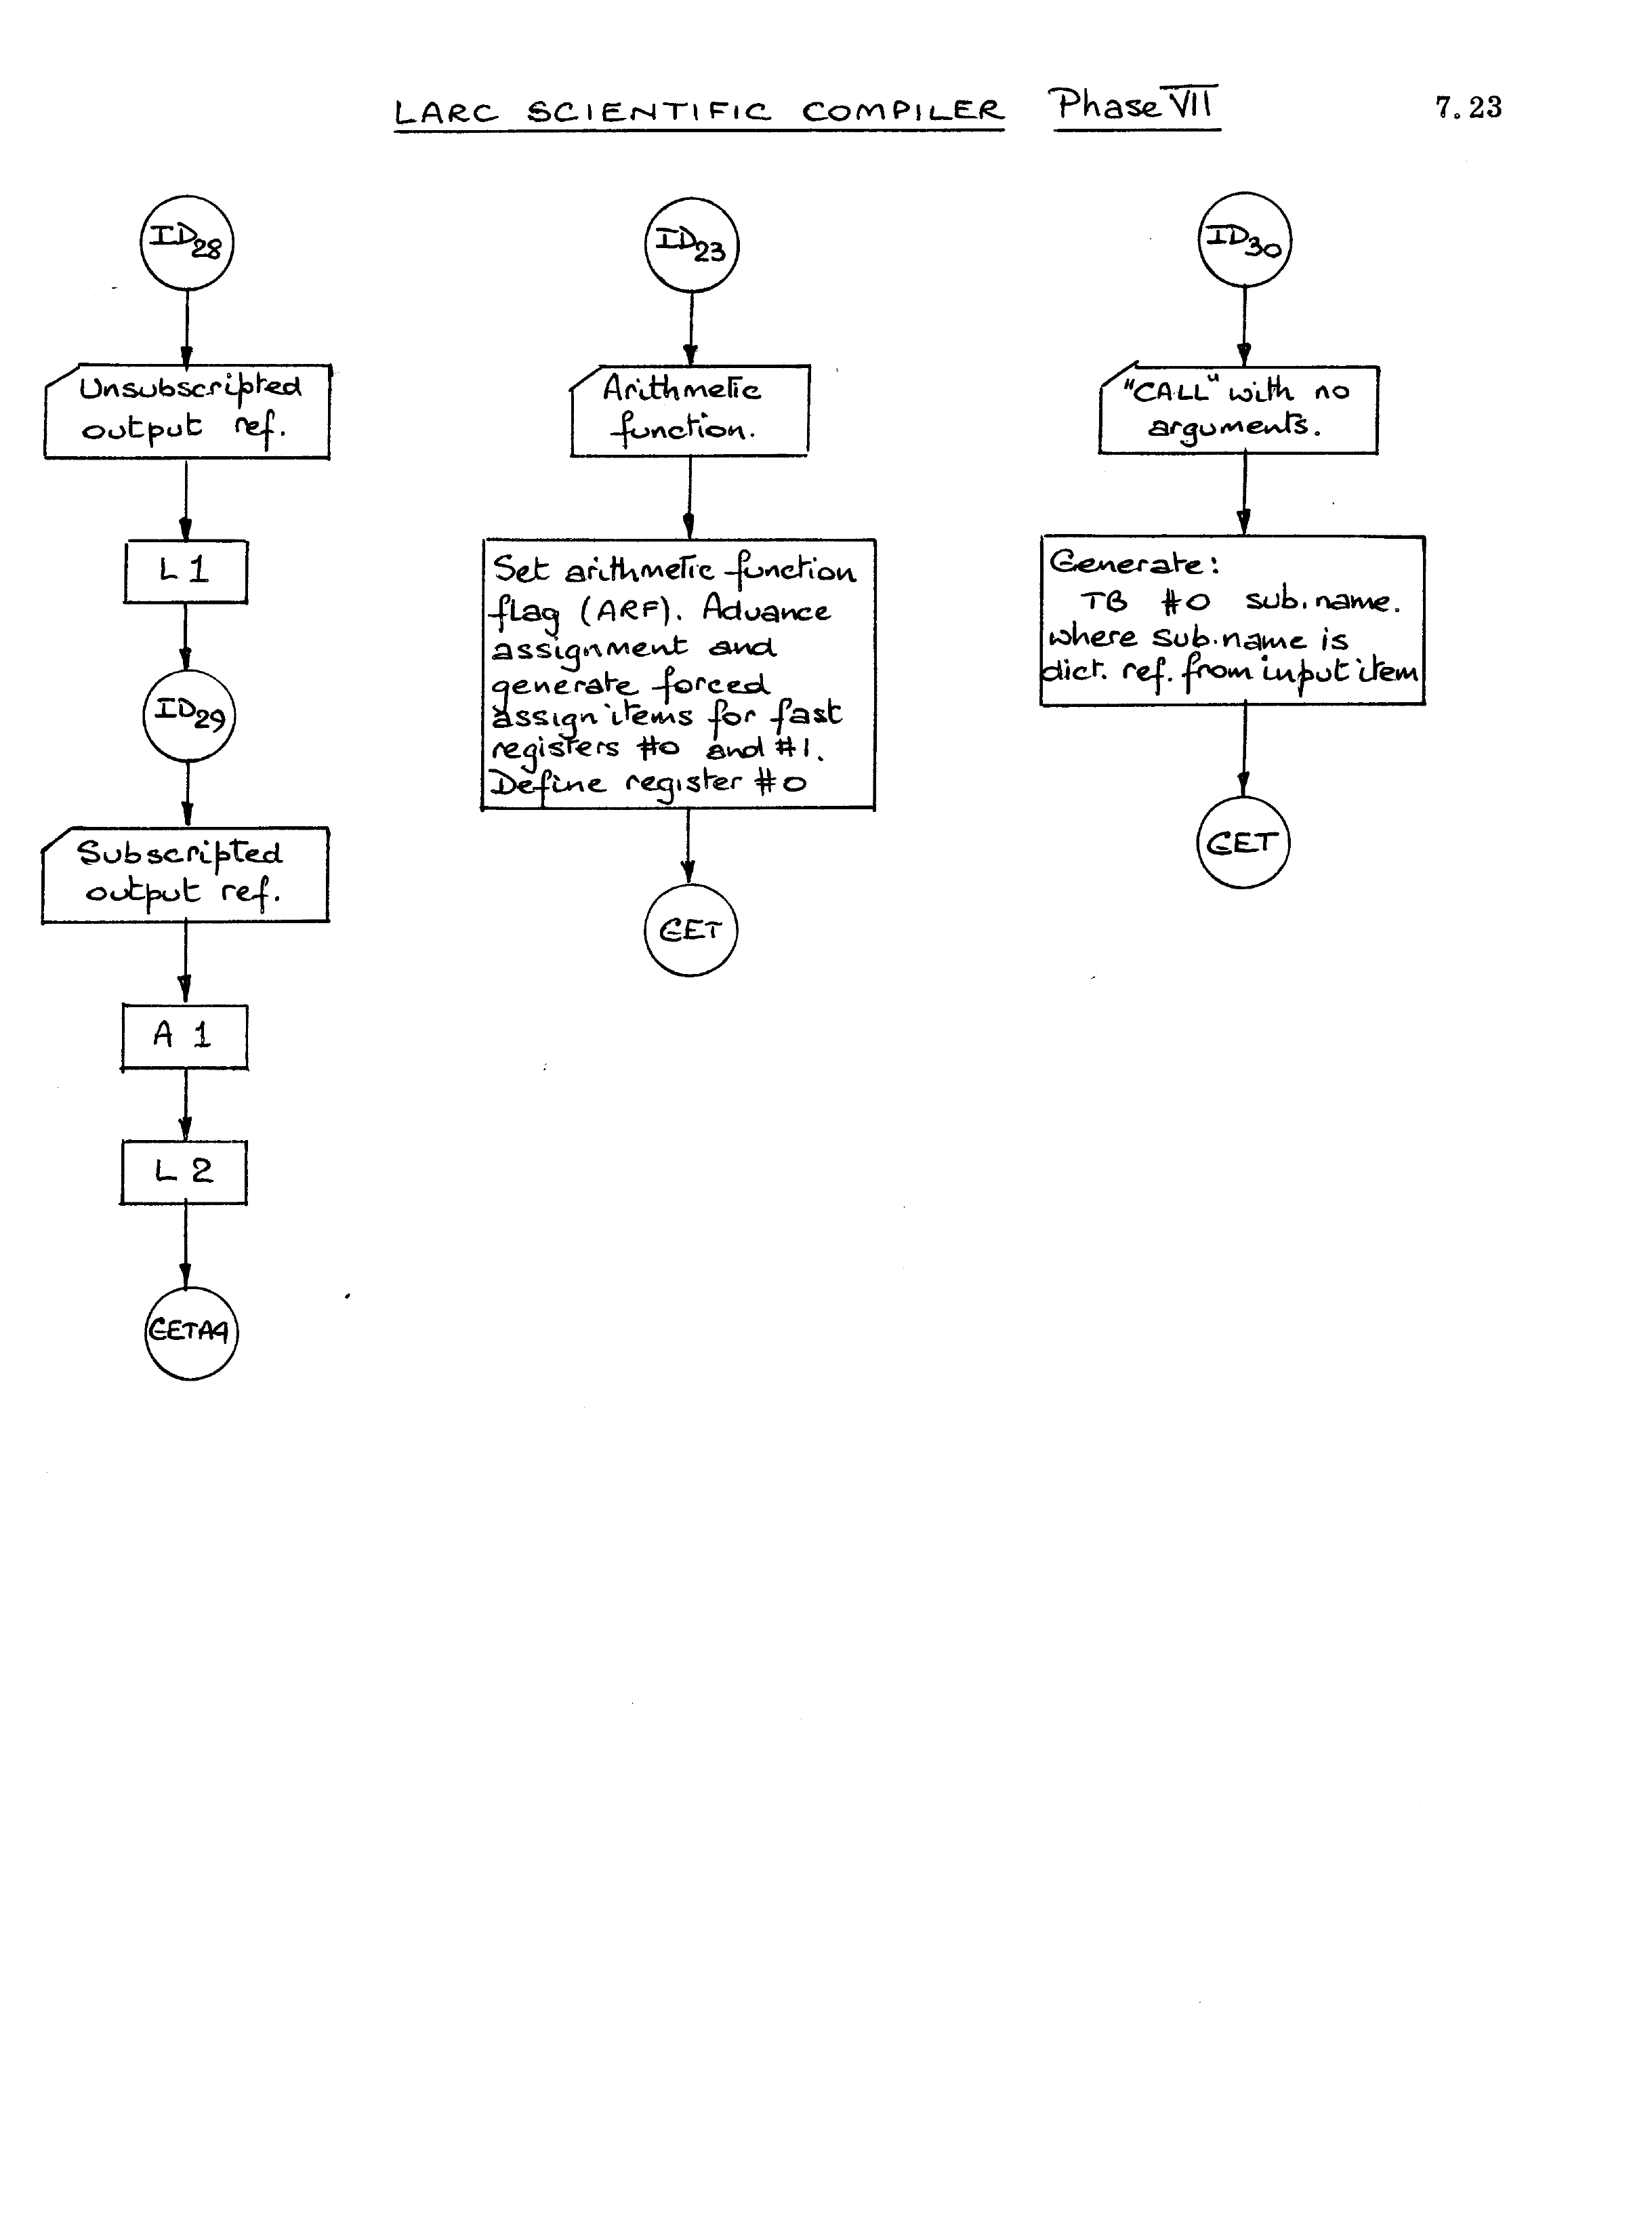 LARC SCIENTIFIC COMPILER Phase VII
7.23
ID28
Unsubscripted
output ref.
L 1
ID29
Subscripted
output ref.
A 1
L 2
GETA9
ID23
Arithmetic
function.
Set arithmetic function
flag (ARF). Advance
assignment and
generate forced
assign items for fast
registers #0 and #1.
Define register #0
GET
ID30
"CALL" with no
arguments.
Generate:
TB #0 sub.name.
where sub.name is
dict. ref. from input item
GET